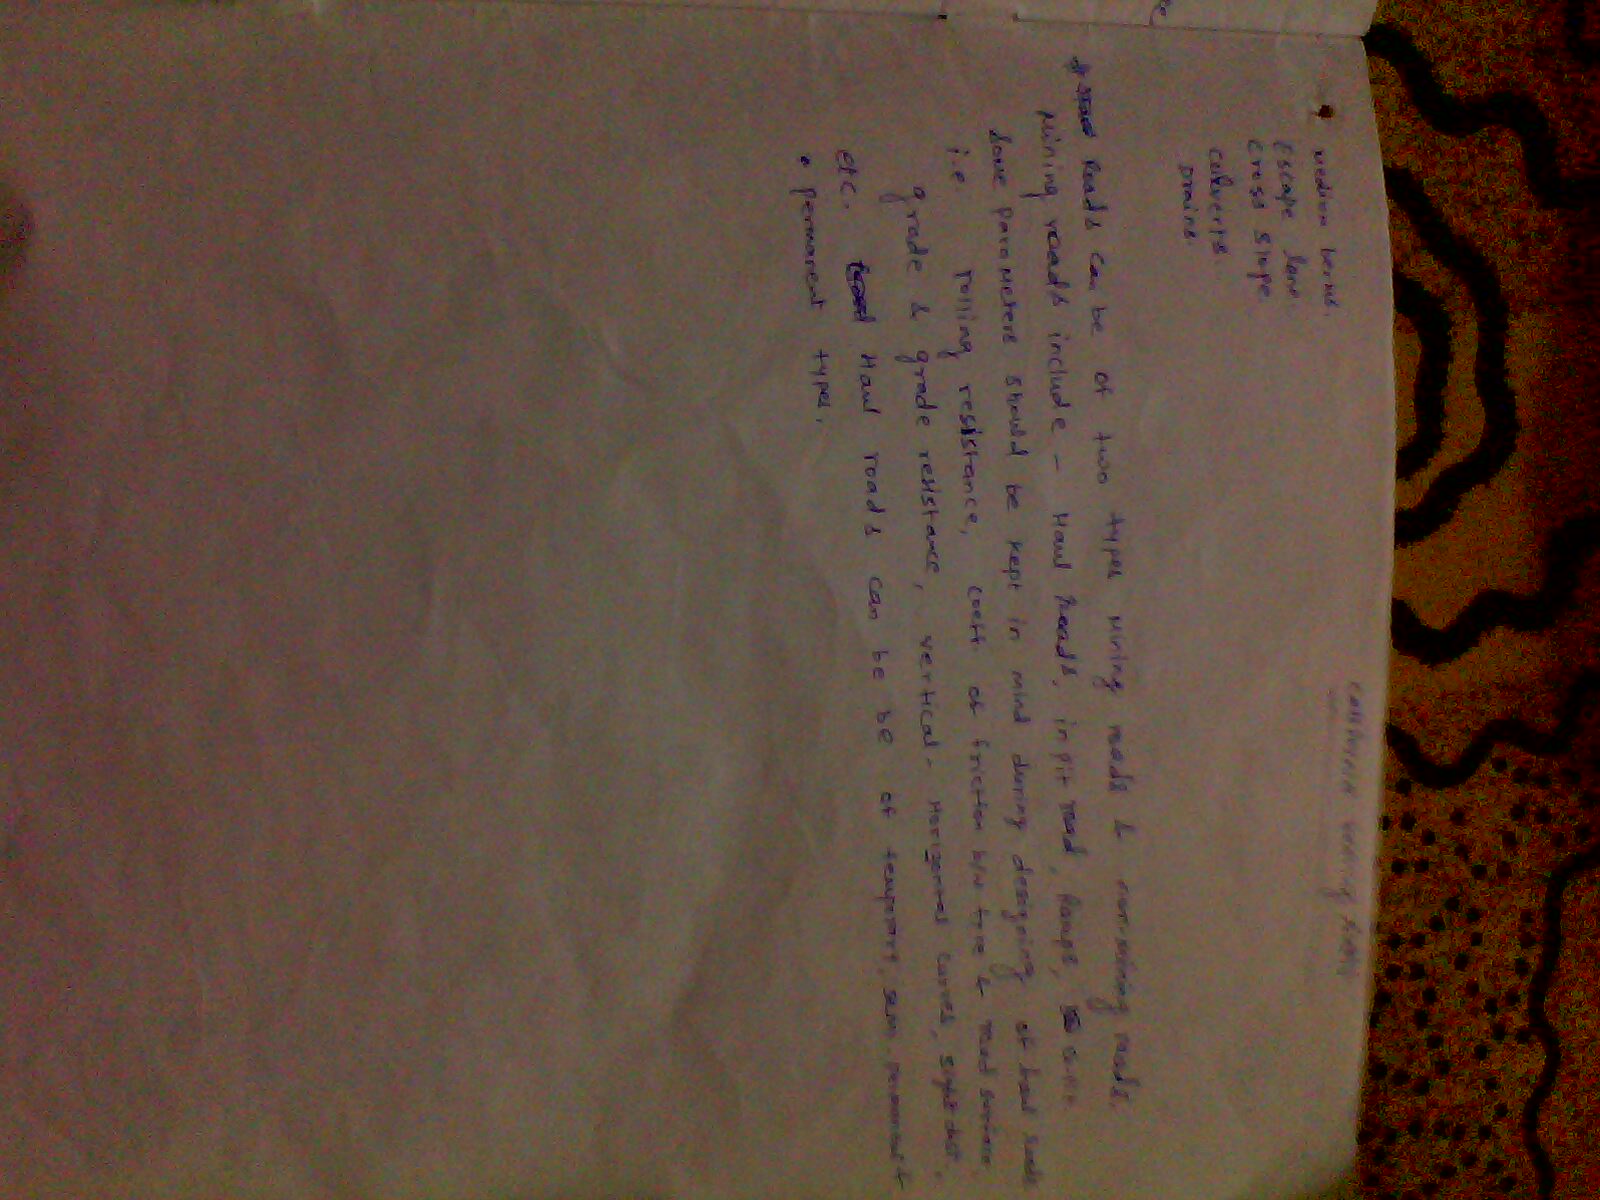 Median berms.
Escape lane
Cross slope
Culverts
Drains.
Roads can be of two types mining roads & non-mining roads.
Mining roads include - Haul Roads, in pit road, Ramps,
Some parameters should be kept in mind during designing of haul roads
i.e. rolling resistance, coeff of friction b/w tyre & road surface,
grade & grade resistance, vertical - Horizontal curves, sight dist.
etc. Haul roads can be be of temporary, semi permanent
• permanent types.